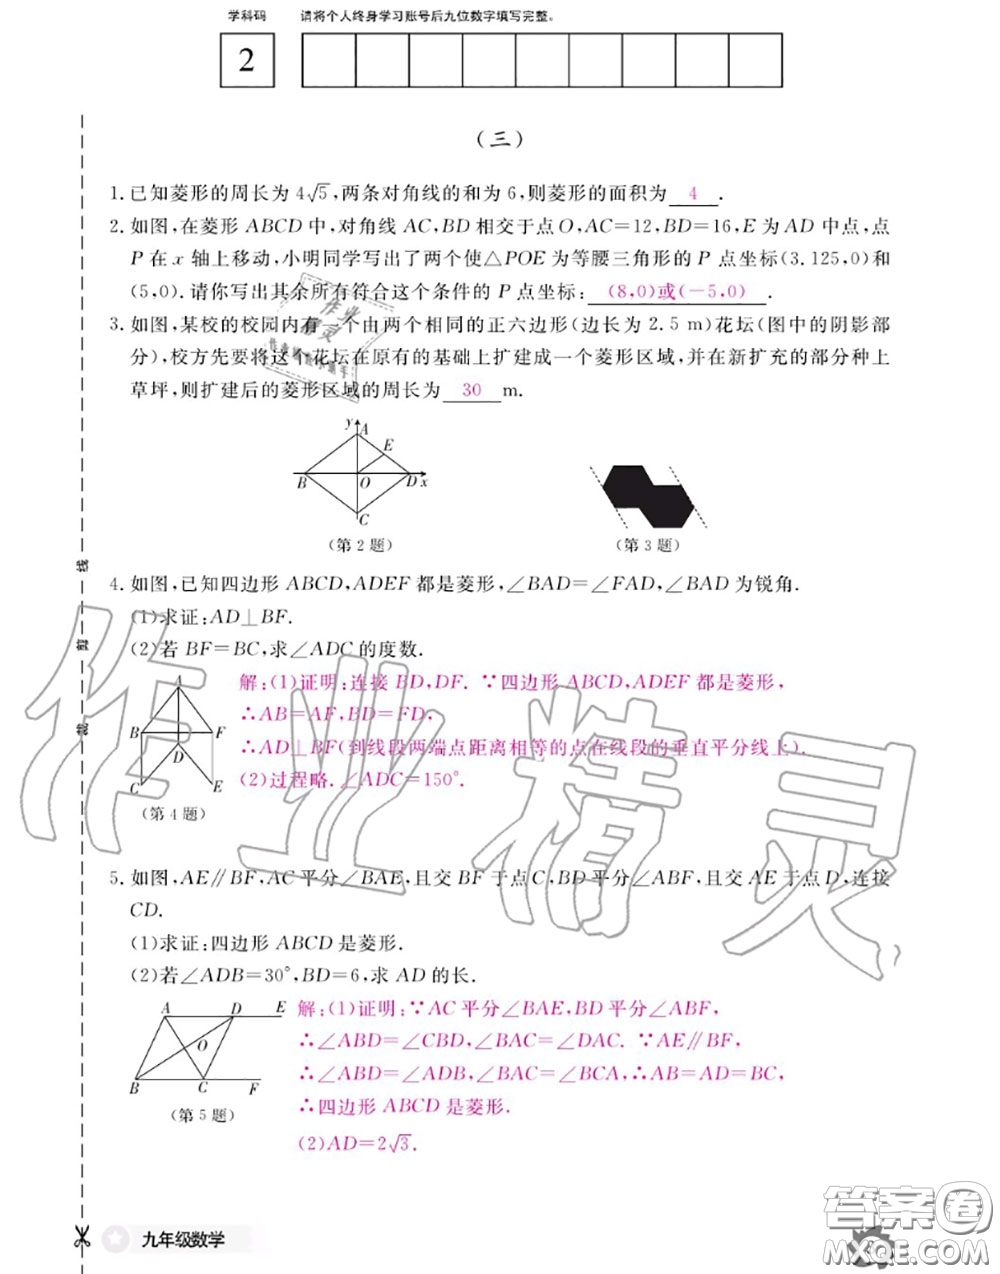 学科码 请将个人终身学习账号后九位数字填写完整。
2
(三)
1.已知菱形的周长为4√5,两条对角线的和为6,则菱形的面积为 4 .
2.如图,在菱形ABCD中,对角线AC,BD相交于点O,AC=12,BD=16,E为AD中点,点
P在x轴上移动,小明同学写出了两个使△POE为等腰三角形的P点坐标(3.125,0)和
(5,0).请你写出其余所有符合这个条件的P点坐标: (8,0)或(-5,0) .
3.如图,某校的校园内有一个由两个相同的正六边形(边长为2.5 m)花坛(图中的阴影部
分),校方先要将这个花坛在原有的基础上扩建成一个菱形区域,并在新扩充的部分种上
草坪,则扩建后的菱形区域的周长为 30 m.
y A E B O D x C
(第2题) (第3题)
4.如图,已知四边形ABCD,ADEF都是菱形,∠BAD=∠FAD,∠BAD为锐角.
(1)求证:AD⊥BF.
(2)若BF=BC,求∠ADC的度数.
解:(1)证明:连接BD,DF. ∵四边形ABCD,ADEF都是菱形,
∴AB=AF,BD=FD,
∴AD⊥BF(到线段两端点距离相等的点在线段的垂直平分线上).
(2)过程略.∠ADC=150°.
A B F D C E
(第4题)
5.如图,AE∥BF,AC平分∠BAE,且交BF于点C,BD平分∠ABF,且交AE于点D,连接
CD.
(1)求证:四边形ABCD是菱形.
(2)若∠ADB=30°,BD=6,求AD的长.
A D E O B C F
(第5题)
解:(1)证明:∵AC平分∠BAE,BD平分∠ABF,
∴∠ABD=∠CBD,∠BAC=∠DAC. ∵AE∥BF,
∴∠ABD=∠ADB,∠BAC=∠BCA,∴AB=AD=BC,
∴四边形ABCD是菱形.
(2)AD=2√3.
线
剪
裁
作业精灵
九年级数学
答案圈
MXQE.COM